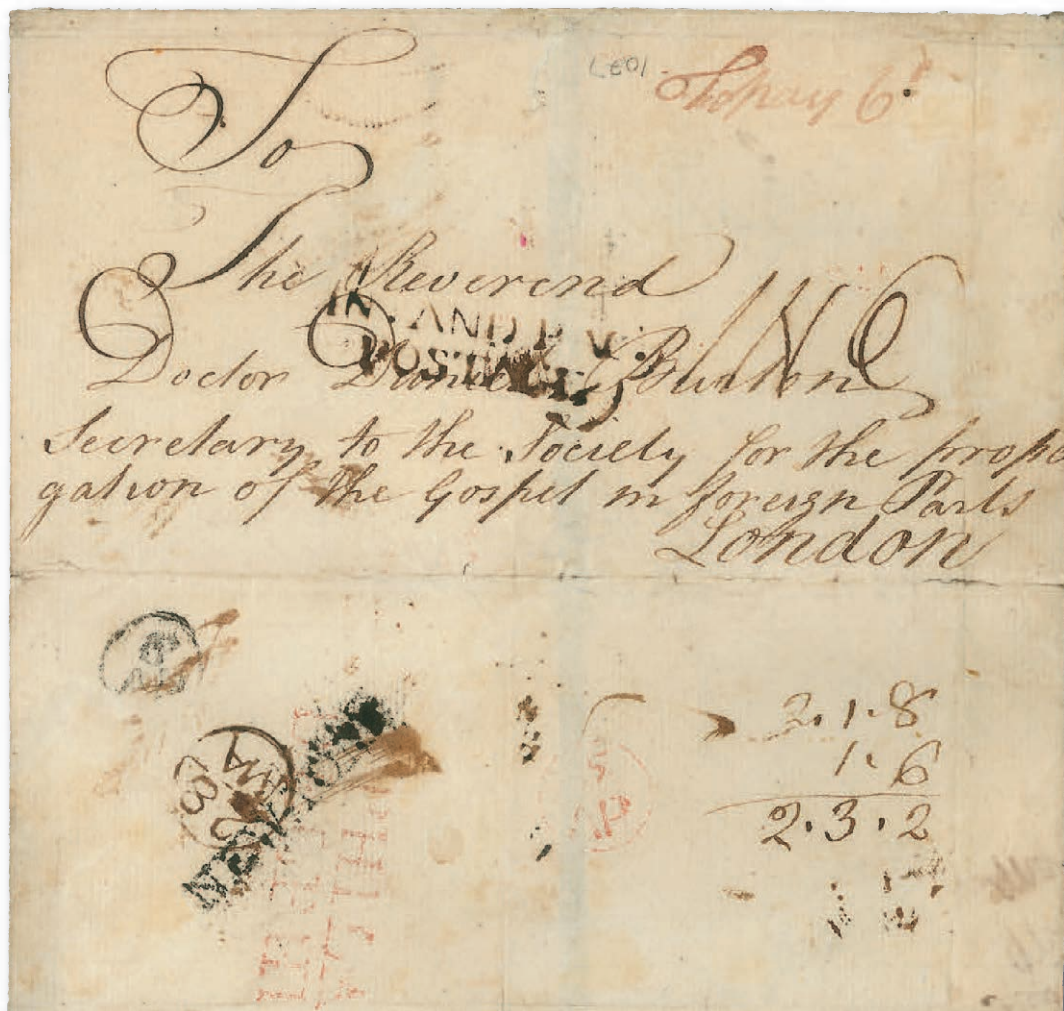 LE01
To pay 6
To
The Reverend
INLAND
POSTAGE
Doctor Daniel Burton
Secretary to the Society for the propa
gation of the Gospel in foreign Parts
London
2.1.8
1.6
2.3.2
NEW YORK